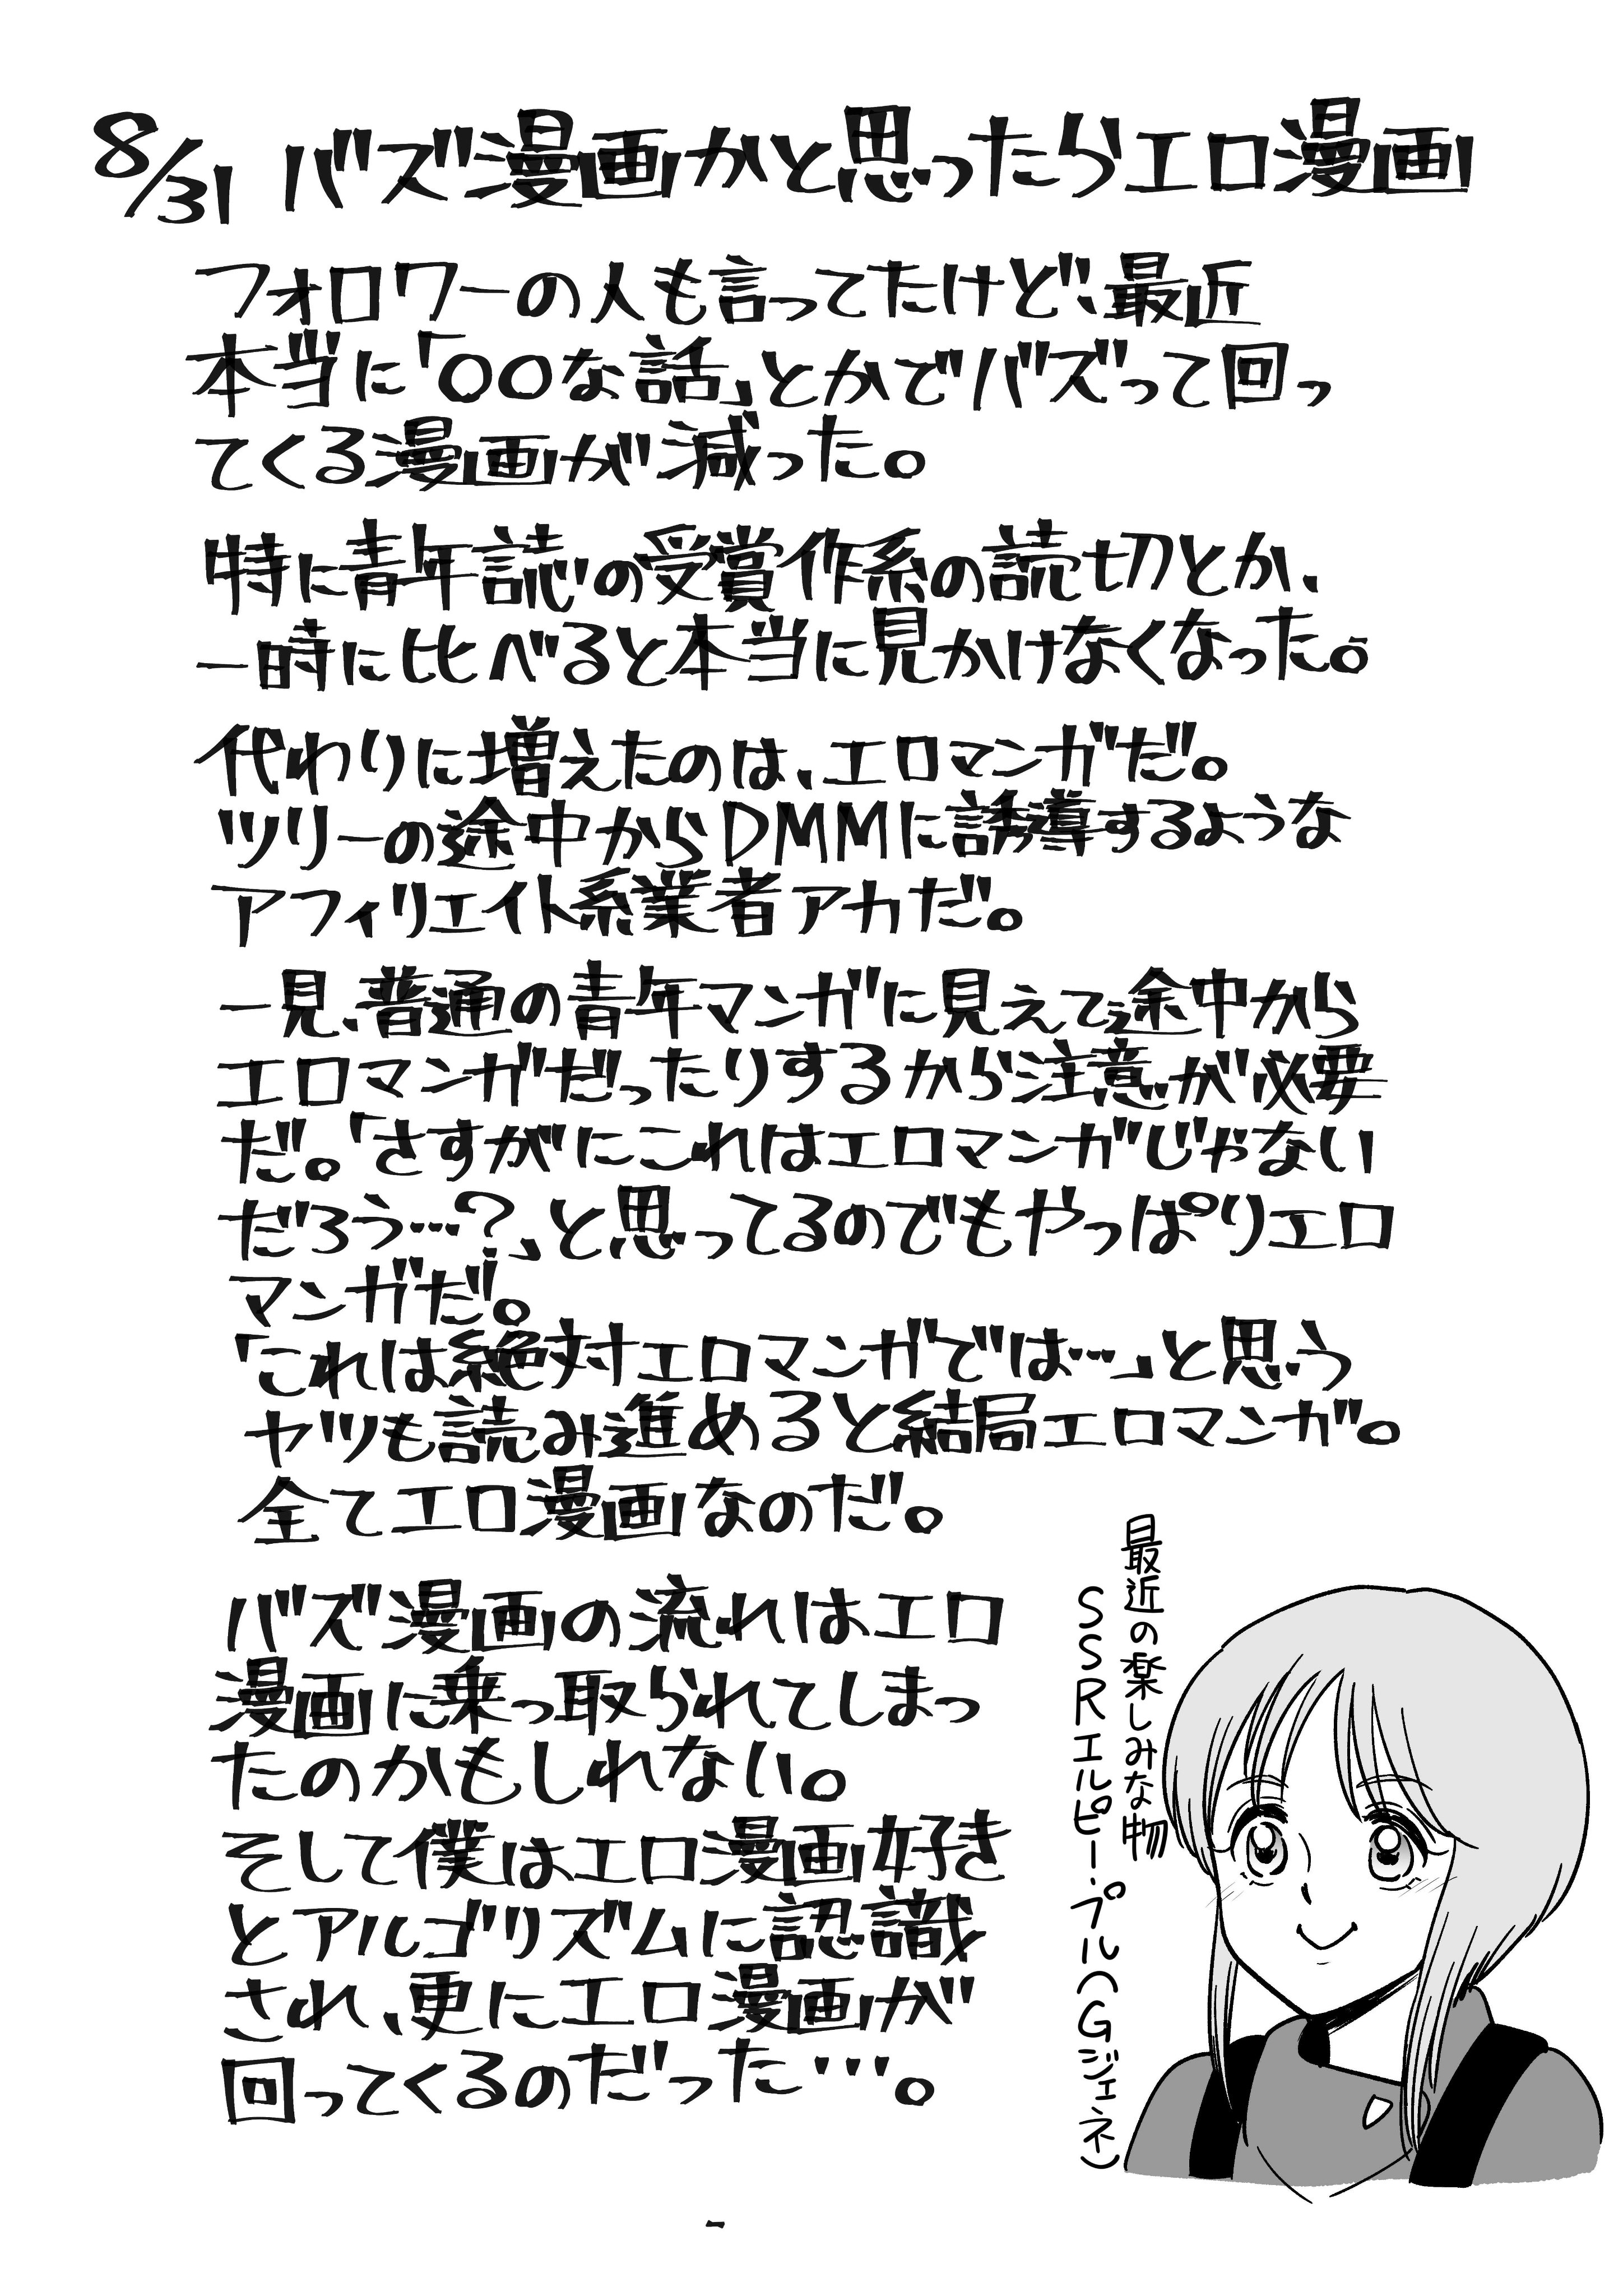 8/31 バズ漫画かと思ったらエロ漫画
フォロワーの人も言ってたけど、最近
本当に「〇〇な話」とかでバズって回っ
てくる漫画が減った。
特に青年誌の受賞作系の読切とか、
一時に比べると本当に見かけなくなった。
代わりに増えたのは、エロマンガだ。
ツリーの途中からDMMに誘導するような
アフィリエイト系業者アカだ。
一見、普通の青年マンガに見えて途中から
エロマンガだったりするから注意が必要
だ。「さすがにこれはエロマンガじゃない
だろう…?」と思ってるのでもやっぱりエロ
マンガだ。
「これは絶対エロマンガでは…」と思う
ヤツも読み進めると結局エロマンガ。
全てエロ漫画なのだ。
バズ漫画の流れはエロ
漫画に乗っ取られてしまっ
たのかもしれない。
そして僕はエロ漫画好き
とアルゴリズムに認識
され、更にエロ漫画が
回ってくるのだった…。
最近の楽しみな物
SSRエルピー・プル(Gジェネ)